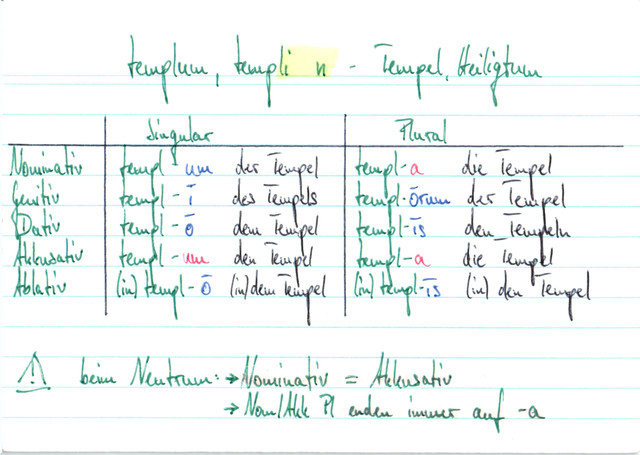 templum, templi n - Tempel, Heiligtum
Singular Plural
Nominativ templ-um der Tempel templ-a die Tempel
Genitiv templ-ī des Tempels templ-ōrum der Tempel
Dativ templ-ō dem Tempel templ-īs den Tempeln
Akkusativ templ-um den Tempel templ-a die Tempel
Ablativ (in) templ-ō (in) dem Tempel (in) templ-īs (in) den Tempel
! beim Neutrum: → Nominativ = Akkusativ
→ Nom/Akk Pl enden immer auf -a